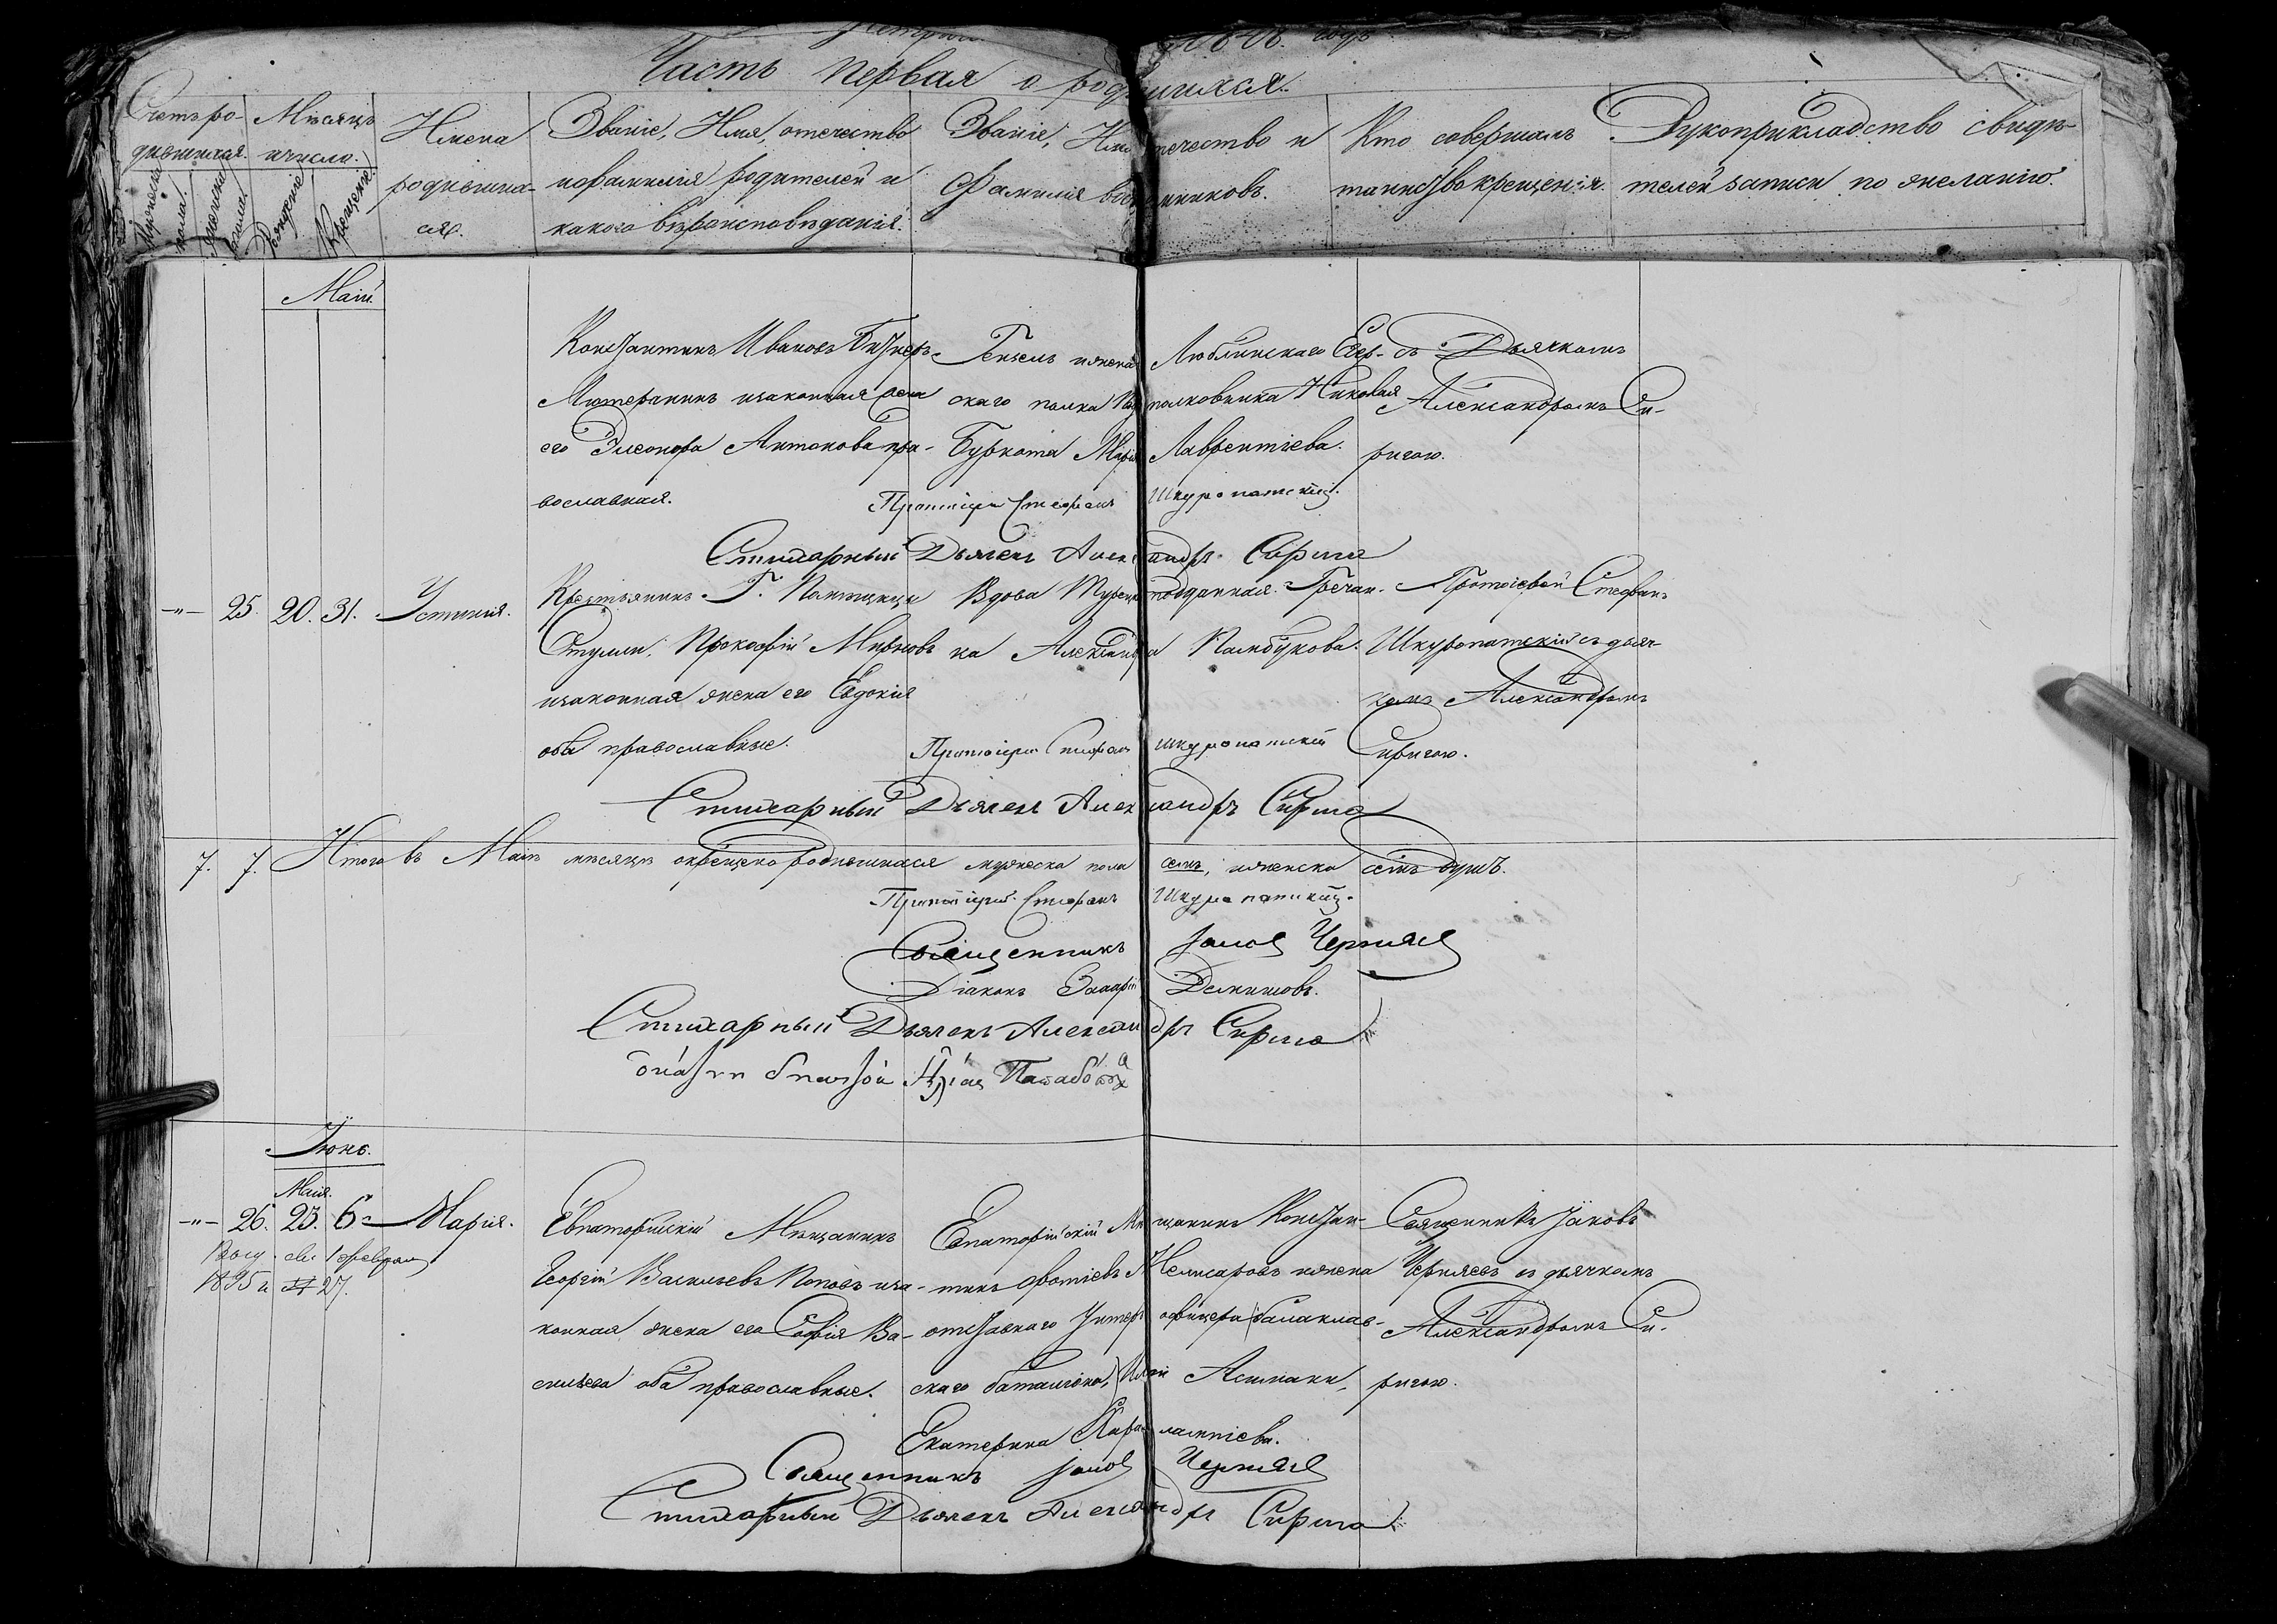 Часть первая о родившихся.
Счетъ родившихся.
Мѣсяцъ и число.
Имена родившихся.
Званіе, Имя, отчество и фамилія родителей и какого вѣроисповѣданія.
Званіе, Имя отчество и Фамилія воспріемниковъ.
Кто совершалъ таинство крещенія.
Рукоприкладство свидѣтелей записи по желанію.
Мужеска пола.
Женска пола.
Рожденія
Крещенія.
Маій.
Константинъ Ивановъ
Лютеранинъ изаконная жена
его Элеонора Антонова пра-
вославная.
и жена Люблинскаго Егер-
скаго полка Подполковника Николая
Бурнота Марія Лаврентіева.
съ Дьячкомъ
Александромъ Си-
ригою.
Протоіерей Стефанъ Шкуропатскій.
Стихарный Дьячекъ Александръ Сирига
-"- 25. 20. 31. Устинія.
Крестьянинъ Г.
Стулли, Прокофій
изаконная жена его Евдокія
оба православные.
Вдова Турецко подданная Гречан-
ка Александра Памбукова.
Протоіерей Стефанъ
Шкуропатскій съ дьяч-
комъ Александромъ
Сиригою.
Протоіерей Стефанъ Шкуропатскій
Стихарный Дьячекъ Александръ Сирига
7. 7. Итого въ Маіѣ мѣсяцѣ окрещено родившихся мужеска пола семь, и женска семь душъ.
Протоіерей Стефанъ Шкуропатскій.
Священникъ Іаковъ Черняевъ
Діаконъ Захарій
Стихарный Дьячекъ Александръ Сирига
Іюнь.
Маія.
-"- 26. 23. 6. Марія.
Выд. св. 1 февраля
1895 г. № 27.
Евпаторійскій Мѣщанинъ
Георгій Васильевъ Поповъ иза-
конная жена его Софія Ва-
сильева оба православные.
Евпаторійскій Мѣщанинъ Констан-
тинъ Фотіевъ и жена
отставнаго Унтеръ офицера (балаклав-
скаго баталіона)
Екатерина Харалампіева.
Священникъ Іаковъ
Черняевъ съ дьячкомъ
Александромъ Си-
ригою.
Священникъ Іаковъ Черняевъ
Стихарный Дьячекъ Александръ Сирига